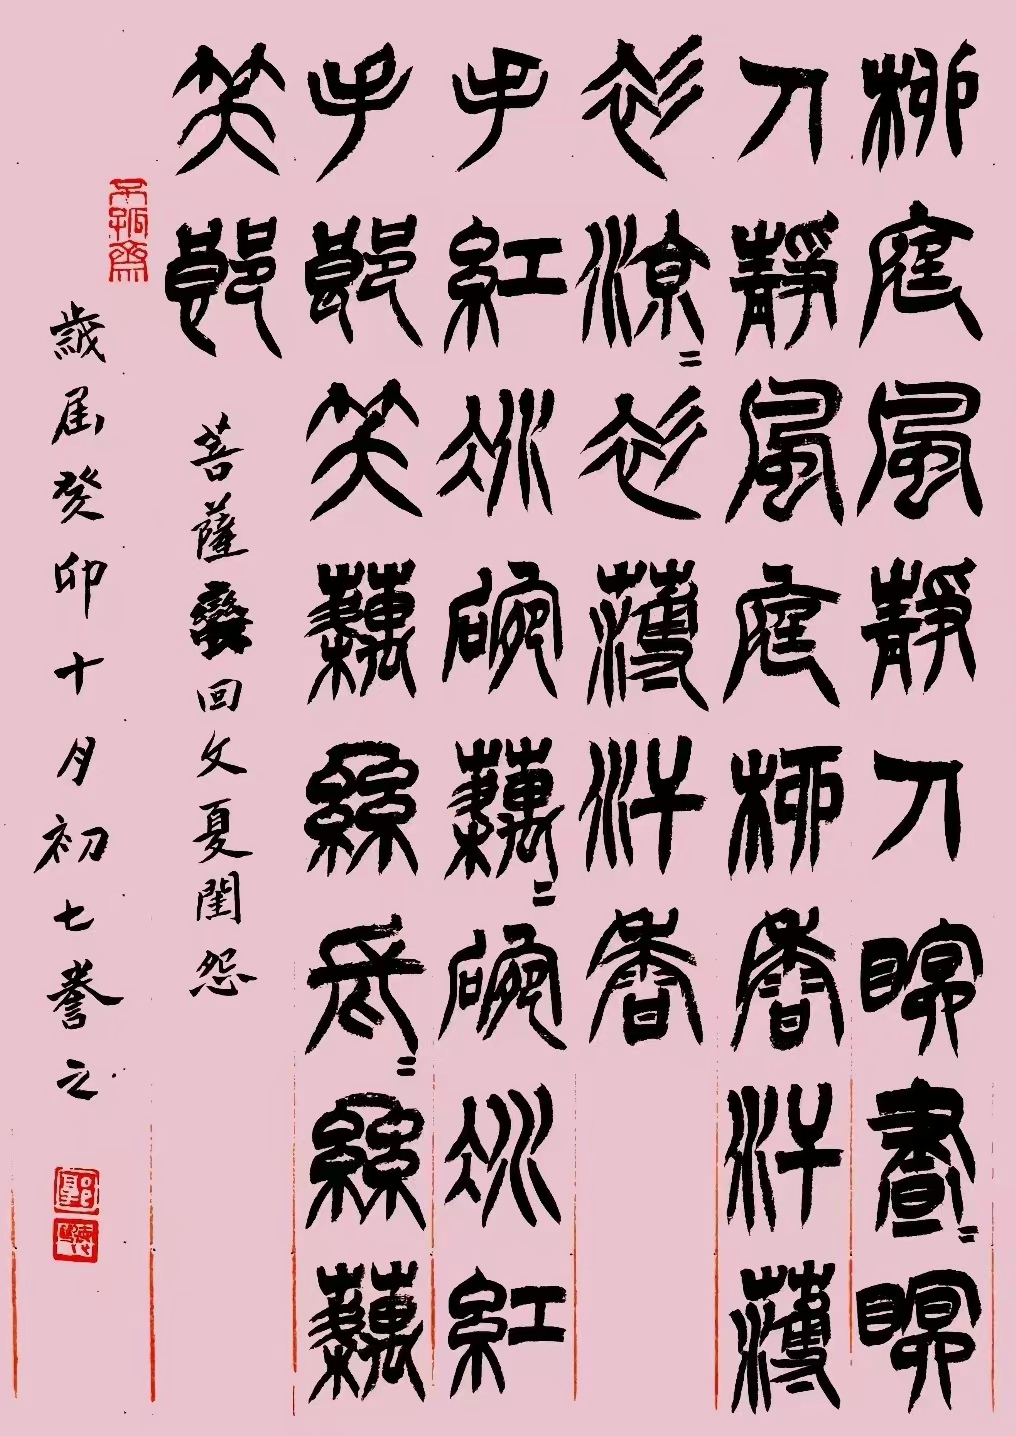 柳庭風靜人眠晝〻眠
人靜風庭柳香汗薄
衫涼〻衫薄汗香
手紅冰碗藕〻碗冰紅
手郎笑藕絲長〻絲藕
笑郎
菩薩蠻回文夏閨怨
不孤齋
歲屆癸卯十月初七誊之